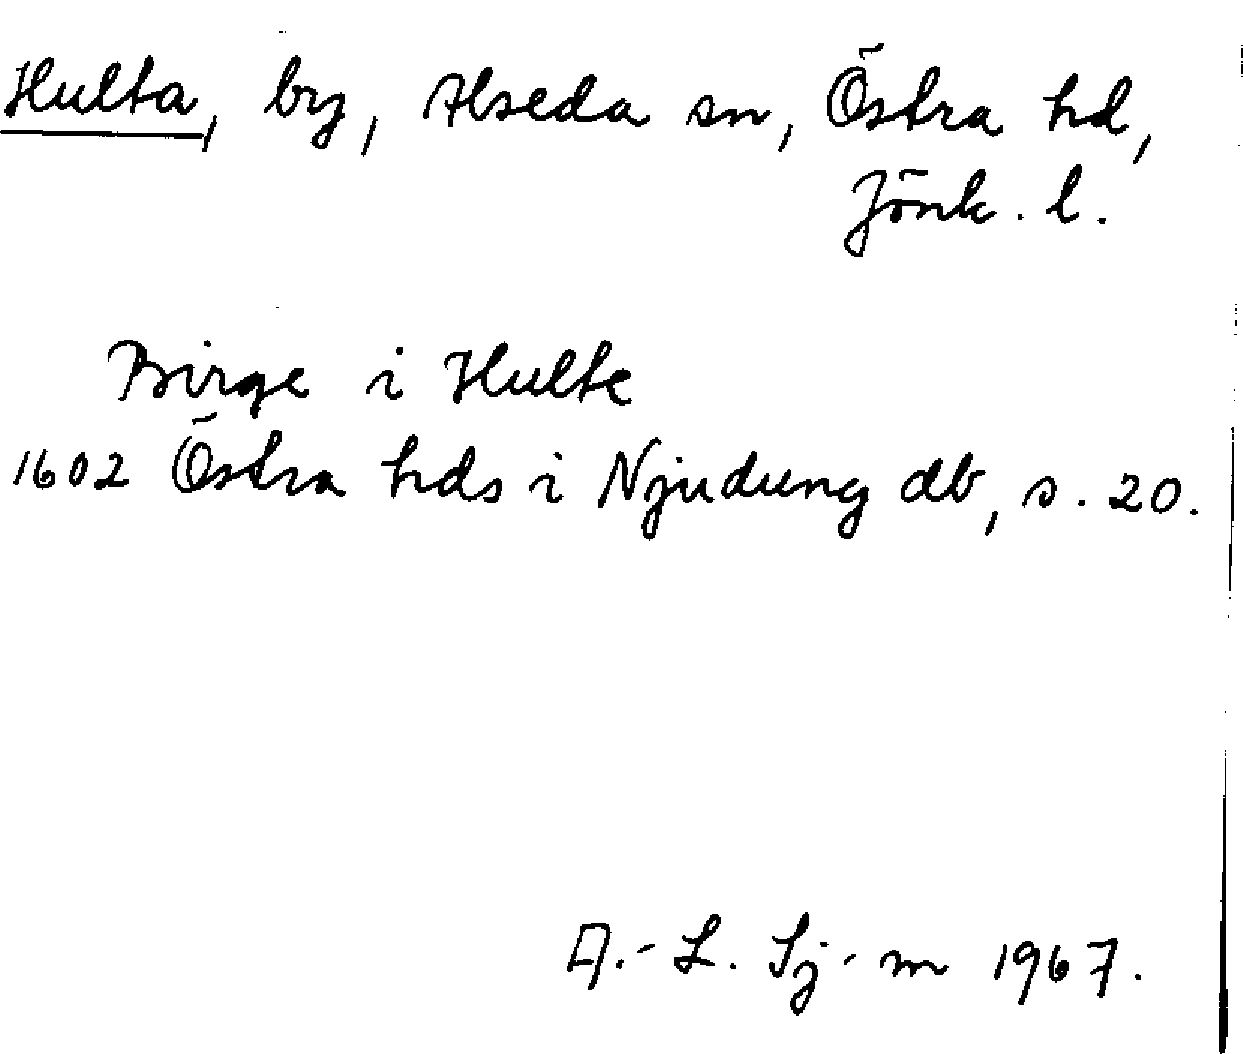 Hulta, by, Alseda sn, Östra hd,
Jönk. l.
Birge i Hulte
1602 Östra hds i Njudung db, s. 20.
A.-L. Sj-m 1967.